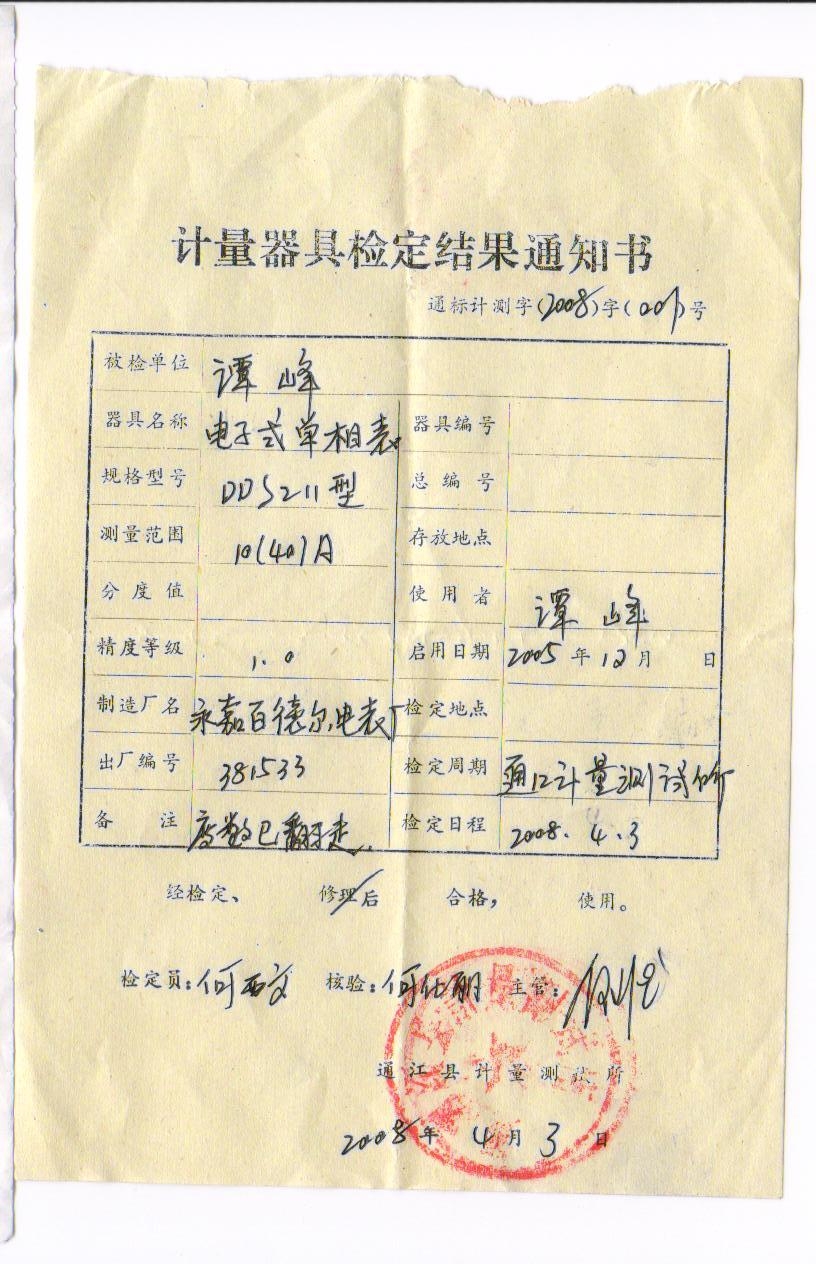 计量器具检定结果通知书
通标计测字(2008)字(001)号
被检单位 谭峰
器具名称 电子式单相表 器具编号
规格型号 DDS211型 总编号
测量范围 10(40)A 存放地点
分度值 使用者 谭峰
精度等级 1.0 启用日期 2005年12月 日
制造厂名 永嘉百德尔电表厂 检定地点
出厂编号 381533 检定周期 通江计量测试所
备注 度数已翻走 检定日程 2008.4.3
经检定、 修理后 合格, 使用。
检定员:何西文 核验:何仕朝 主管:
通江县计量测试所
2008年4月3日